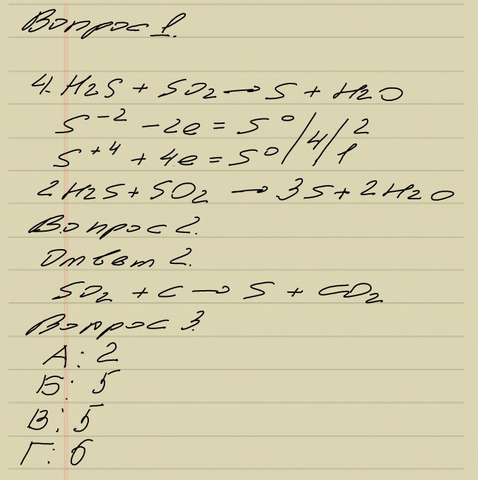 Вопрос 1.
4. H2S + SO2 → S + H2O
S^-2 - 2e = S^0 / 4 / 2
S^+4 + 4e = S^0 / 4 / 1
2H2S + SO2 → 3S + 2H2O
Вопрос 2.
Ответ 2.
SO2 + C → S + CO2
Вопрос 3.
А: 2
Б: 5
В: 5
Г: 6